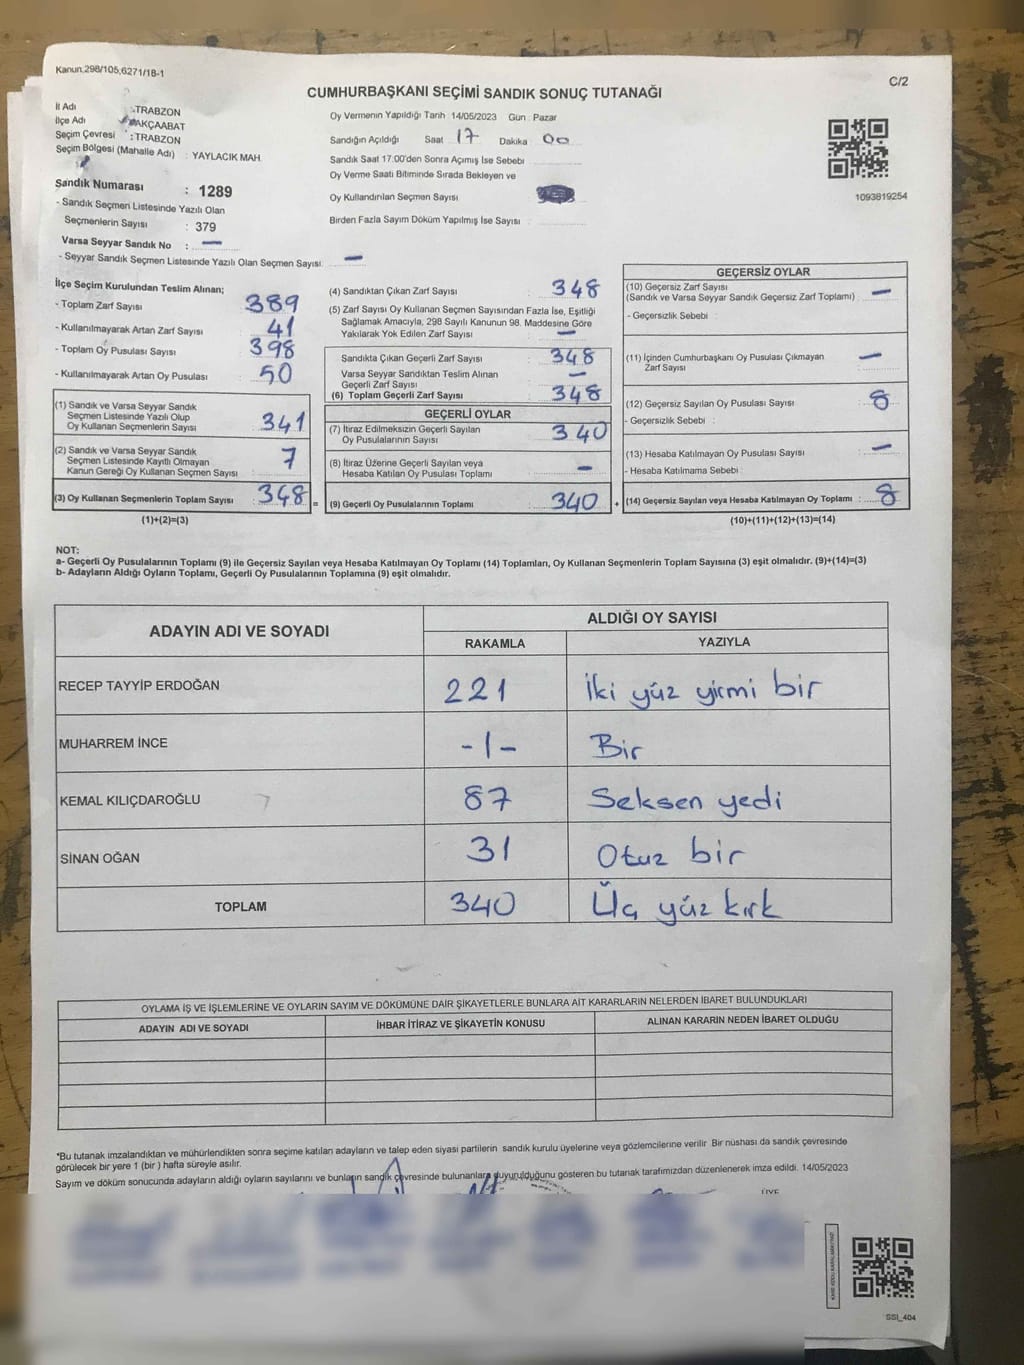 Kanun:298/105,6271/18-1
C/2
CUMHURBAŞKANI SEÇİMİ SANDIK SONUÇ TUTANAĞI
İl Adı :TRABZON
İlçe Adı AKÇAABAT
Seçim Çevresi :TRABZON
Seçim Bölgesi (Mahalle Adı) : YAYLACIK MAH.
Sandık Numarası : 1289
- Sandık Seçmen Listesinde Yazılı Olan
Seçmenlerin Sayısı : 379
Varsa Seyyar Sandık No : —
- Seyyar Sandık Seçmen Listesinde Yazılı Olan Seçmen Sayısı: —
Oy Vermenin Yapıldığı Tarih : 14/05/2023 Gün : Pazar
Sandığın Açıldığı Saat 17 Dakika 00
Sandık Saat 17.00'den Sonra Açımış İse Sebebi
Oy Verme Saati Bitiminde Sırada Bekleyen ve
Oy Kullandırılan Seçmen Sayısı
Birden Fazla Sayım Döküm Yapılmış İse Sayısı :
1093819254
İlçe Seçim Kurulundan Teslim Alınan;
- Toplam Zarf Sayısı 389
- Kullanılmayarak Artan Zarf Sayısı : 41
- Toplam Oy Pusulası Sayısı : 398
- Kullanılmayarak Artan Oy Pusulası : 50
(1) Sandık ve Varsa Seyyar Sandık
Seçmen Listesinde Yazılı Olup
Oy Kullanan Seçmenlerin Sayısı : 341
(2) Sandık ve Varsa Seyyar Sandık
Seçmen Listesinde Kayıtlı Olmayan
Kanun Gereği Oy Kullanan Seçmen Sayısı : 7
(3) Oy Kullanan Seçmenlerin Toplam Sayısı : 348 =
(1)+(2)=(3)
(4) Sandıktan Çıkan Zarf Sayısı : 348
(5) Zarf Sayısı Oy Kullanan Seçmen Sayısından Fazla İse, Eşitliği
Sağlamak Amacıyla, 298 Sayılı Kanunun 98. Maddesine Göre
Yakılarak Yok Edilen Zarf Sayısı : —
Sandıkta Çıkan Geçerli Zarf Sayısı : 348
Varsa Seyyar Sandıktan Teslim Alınan
Geçerli Zarf Sayısı : —
(6) Toplam Geçerli Zarf Sayısı : 348
GEÇERLİ OYLAR
(7) İtiraz Edilmeksizin Geçerli Sayılan
Oy Pusulalarının Sayısı : 340
(8) İtiraz Üzerine Geçerli Sayılan veya
Hesaba Katılan Oy Pusulası Toplamı : —
(9) Geçerli Oy Pusulalarının Toplamı : 340 +
GEÇERSİZ OYLAR
(10) Geçersiz Zarf Sayısı
(Sandık ve Varsa Seyyar Sandık Geçersiz Zarf Toplamı) : —
- Geçersizlik Sebebi :
(11) İçinden Cumhurbaşkanı Oy Pusulası Çıkmayan
Zarf Sayısı : —
(12) Geçersiz Sayılan Oy Pusulası Sayısı : 8
- Geçersizlik Sebebi :
(13) Hesaba Katılmayan Oy Pusulası Sayısı : —
- Hesaba Katılmama Sebebi :
(14) Geçersiz Sayılan veya Hesaba Katılmayan Oy Toplamı : 8
(10)+(11)+(12)+(13)=(14)
NOT:
a- Geçerli Oy Pusulalarının Toplamı (9) ile Geçersiz Sayılan veya Hesaba Katılmayan Oy Toplamı (14) Toplamları, Oy Kullanan Seçmenlerin Toplam Sayısına (3) eşit olmalıdır. (9)+(14)=(3)
b- Adayların Aldığı Oyların Toplamı, Geçerli Oy Pusulalarının Toplamına (9) eşit olmalıdır.
ADAYIN ADI VE SOYADI ALDIĞI OY SAYISI
RAKAMLA YAZIYLA
RECEP TAYYİP ERDOĞAN 221 İki yüz yirmi bir
MUHARREM İNCE -1- Bir
KEMAL KILIÇDAROĞLU 87 Seksen yedi
SİNAN OĞAN 31 Otuz bir
TOPLAM 340 Üç yüz kırk
OYLAMA İŞ VE İŞLEMLERİNE VE OYLARIN SAYIM VE DÖKÜMÜNE DAİR ŞİKAYETLERLE BUNLARA AİT KARARLARIN NELERDEN İBARET BULUNDUKLARI
ADAYIN ADI VE SOYADI İHBAR İTİRAZ VE ŞİKAYETİN KONUSU ALINAN KARARIN NEDEN İBARET OLDUĞU
*Bu tutanak imzalandıktan ve mühürlendikten sonra seçime katılan adayların ve talep eden siyasi partilerin sandık kurulu üyelerine veya gözlemcilerine verilir Bir nüshası da sandık çevresinde
görülecek bir yere 1 (bir ) hafta süreyle asılır.
Sayım ve döküm sonucunda adayların aldığı oyların sayılarını ve bunların sandık çevresinde bulunanlara duyurulduğunu gösteren bu tutanak tarafımızdan düzenlenerek imza edildi. 14/05/2023
ÜYE
SSI_404